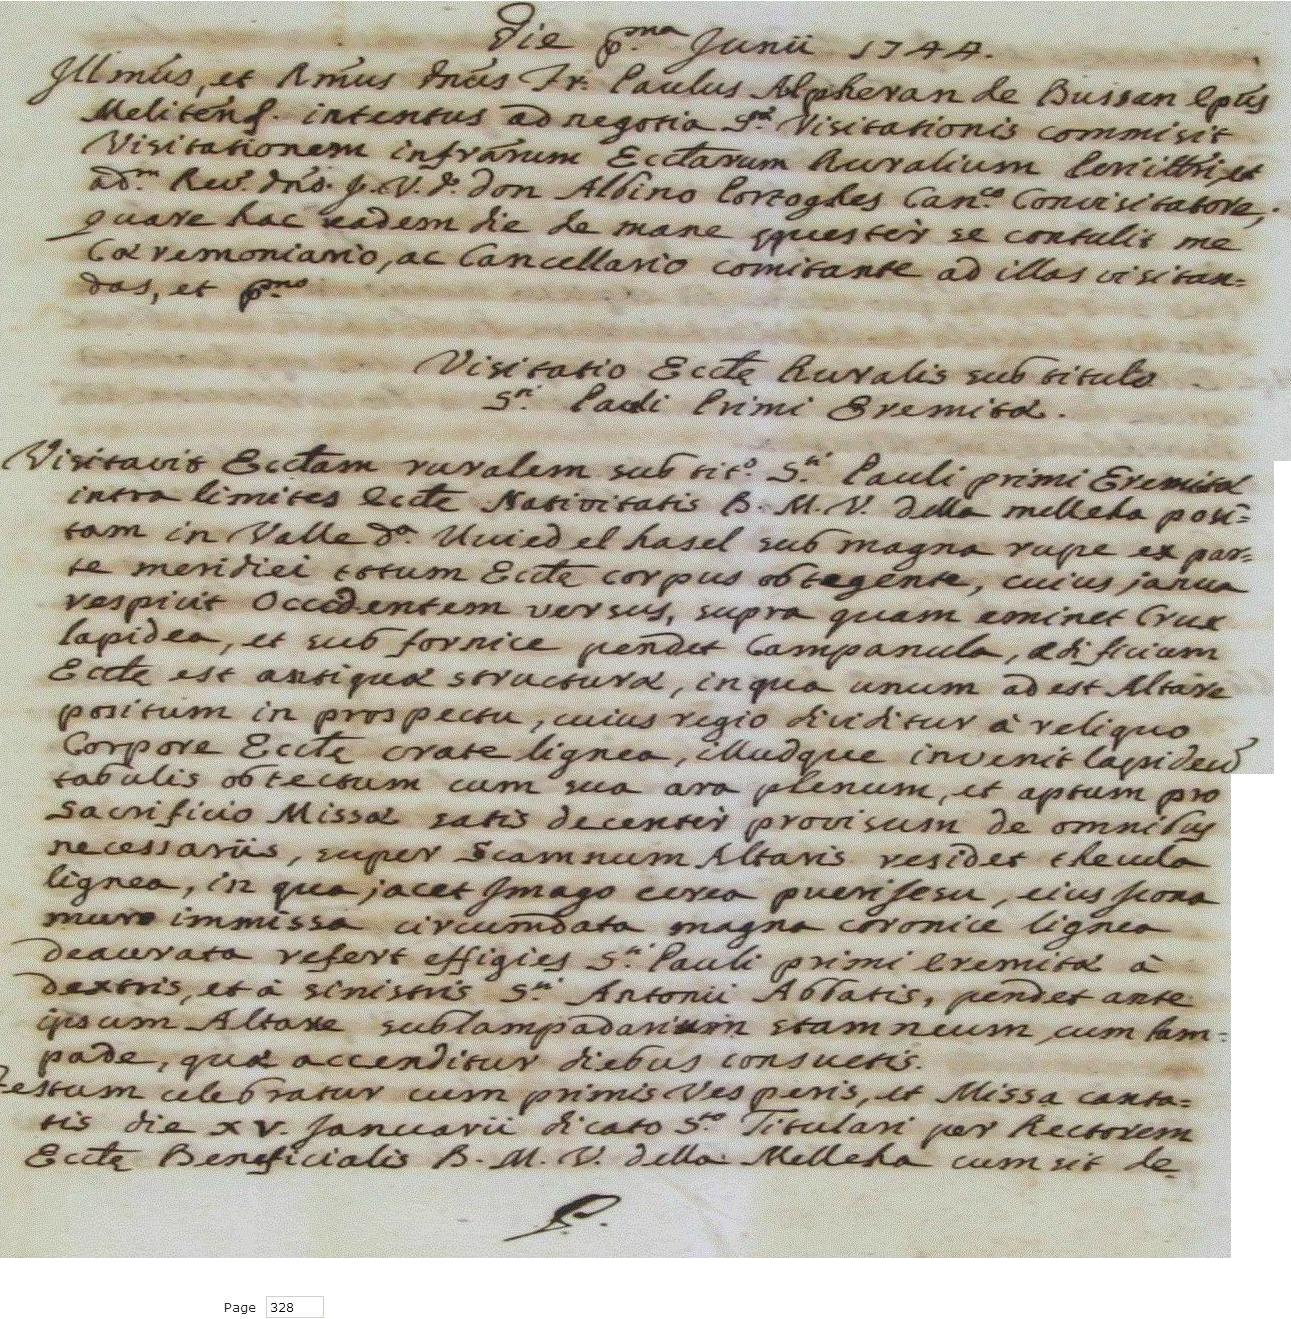 Die p.ma Junii 1744.
Illmus, et Rmus Dnus Fr. Paulus Alpheran de Bussan Epus
Melitens. intentus ad negotia S.ae Visitationis commisit
Visitationem infrarum Ecctarum Ruralium Perillri, et
ad.m Rev. Dno. J.V.D. Don Albino Portoghes Can.co Convisitatore,
quare hac eadem die de mane equester se contulit me
Cæremoniario, ac Cancellario comitante ad illas visitan=
das, et p.mo
Visitatio Eccłę Ruralis sub titulo
S.ti Pauli Primi Eremitæ.
Visitavit Eccłam ruralem sub tit.o S.ti Pauli primi Eremitæ
intra limites Eccłę Nativitatis B. M. V. della melleha posi=
tam in Valle D.a Uuied el hasel sub magna rupe ex par=
te meridiei totum Eccłę corpus obtegente, cuius janua
respicit Occidentem versus, supra quam eminet Crux
lapidea, et sub fornice pendet Campanula, ædificium
Eccłę est antiquæ structuræ, in qua unum adest Altare
positum in prospectu, cuius regio dividitur à reliquo
Corpore Eccłę crate lignea, illudque invenit lapideũ
tabulis obtectum cum sua ara plenum, et aptum pro
Sacrificio Missæ satis decenter provisum de omnibus
necessariis, super Scamnum Altaris residet theula
lignea, in qua jacet Imago cerea pueri Jesu, eius Icona
muro immissa circumdata magna coronice lignea
deaurata refert effigies S.ti Pauli primi eremitæ à
dextris, et à sinistris S.ti Antonii Abbatis, pendet ante
ipsum Altare sublampadarium stamneum cum lam=
pade, quæ accenditur diebus consuetis.
Festum celebratur cum primis Vesperis, et Missa canta=
tis die xv. Januarii dicato S.to Titulari per Rectorem
Eccłę Beneficialis B. M. V. della Melleha cum sit de
Page 328